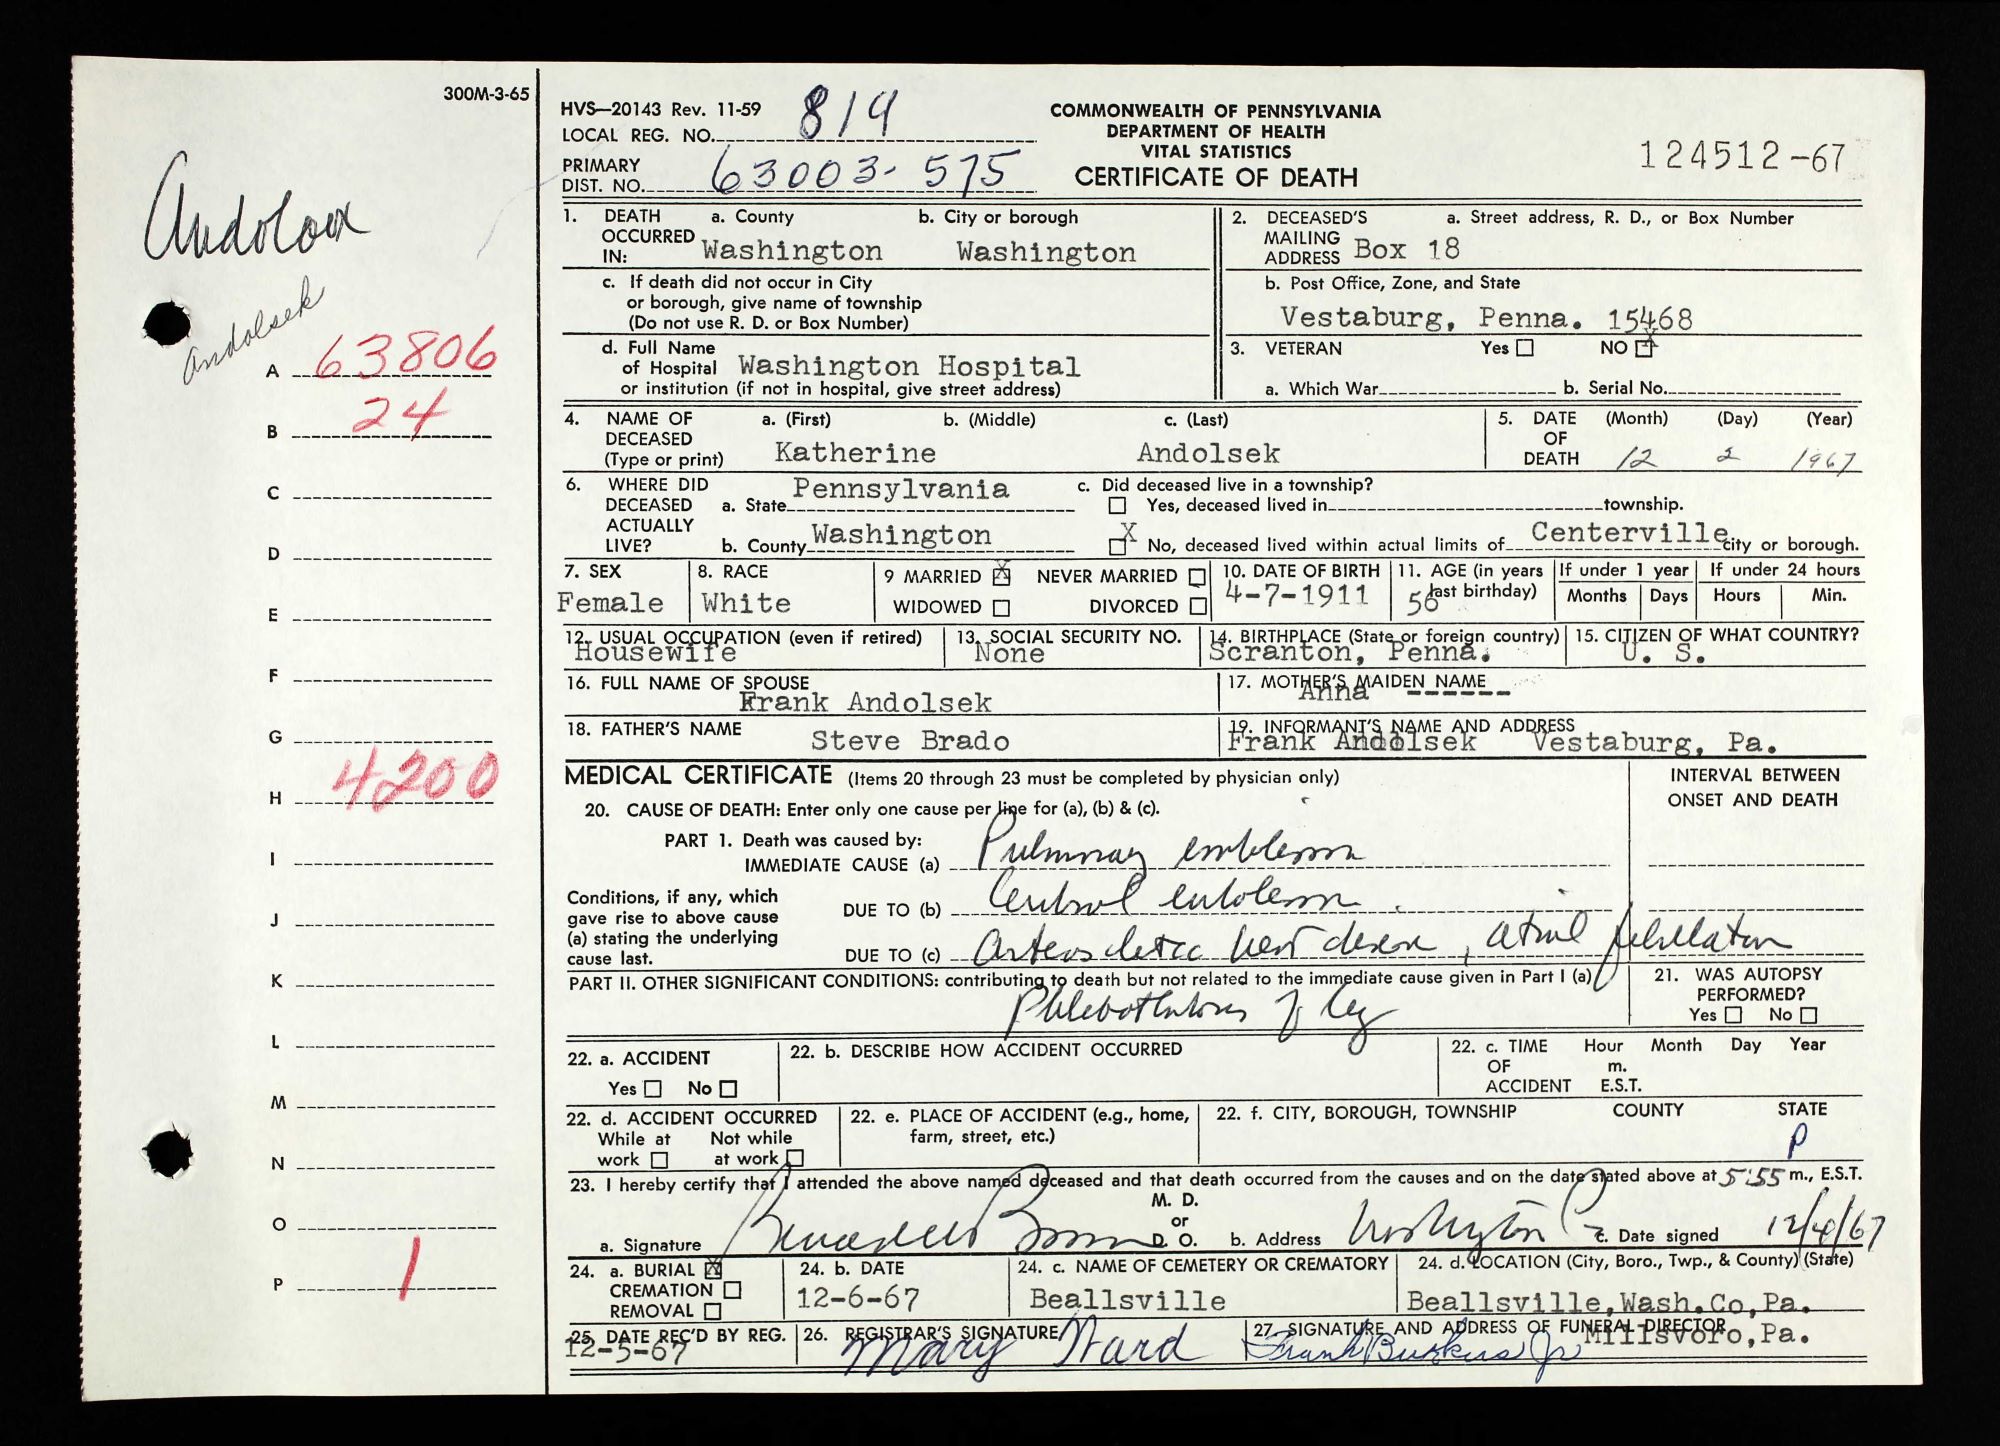 300M-3-65
Andolsek
A 63806
B 24
C
D
E
F
G
H 4200
I
J
K
L
M
N
O
P 1
HVS—20143 Rev. 11-59
LOCAL REG. NO. 819
PRIMARY
DIST. NO. 63003-575
COMMONWEALTH OF PENNSYLVANIA
DEPARTMENT OF HEALTH
VITAL STATISTICS
CERTIFICATE OF DEATH
124512-67
1. DEATH OCCURRED IN: a. County b. City or borough
Washington Washington
c. If death did not occur in City
or borough, give name of township
(Do not use R. D. or Box Number)
d. Full Name
of Hospital Washington Hospital
or institution (if not in hospital, give street address)
2. DECEASED'S MAILING ADDRESS a. Street address, R. D., or Box Number
Box 18
b. Post Office, Zone, and State
Vestaburg, Penna. 15468
3. VETERAN Yes ☐ NO ☒
a. Which War b. Serial No.
4. NAME OF DECEASED (Type or print) a. (First) b. (Middle) c. (Last)
Katherine Andolsek
5. DATE OF DEATH (Month) (Day) (Year)
12 2 1967
6. WHERE DID DECEASED ACTUALLY LIVE?
a. State Pennsylvania
b. County Washington
c. Did deceased live in a township?
☐ Yes, deceased lived in township.
☒ No, deceased lived within actual limits of Centerville city or borough.
7. SEX
Female
8. RACE
White
9 MARRIED ☒ NEVER MARRIED ☐
WIDOWED ☐ DIVORCED ☐
10. DATE OF BIRTH
4-7-1911
11. AGE (in years last birthday)
56
If under 1 year If under 24 hours
Months Days Hours Min.
12. USUAL OCCUPATION (even if retired)
Housewife
13. SOCIAL SECURITY NO.
None
14. BIRTHPLACE (State or foreign country)
Scranton, Penna.
15. CITIZEN OF WHAT COUNTRY?
U. S.
16. FULL NAME OF SPOUSE
Frank Andolsek
17. MOTHER'S MAIDEN NAME
Anna ------
18. FATHER'S NAME
Steve Brado
19. INFORMANT'S NAME AND ADDRESS
Frank Andolsek Vestaburg, Pa.
MEDICAL CERTIFICATE (Items 20 through 23 must be completed by physician only)
INTERVAL BETWEEN
ONSET AND DEATH
20. CAUSE OF DEATH: Enter only one cause per line for (a), (b) & (c).
PART 1. Death was caused by:
IMMEDIATE CAUSE (a) Pulmonary embolism
Conditions, if any, which
gave rise to above cause
(a) stating the underlying
cause last.
DUE TO (b) Cerebral embolism
DUE TO (c) Arteriosclerotic heart disease, atrial fibrillation
PART II. OTHER SIGNIFICANT CONDITIONS: contributing to death but not related to the immediate cause given in Part I (a)
Phlebothrombosis of leg
21. WAS AUTOPSY
PERFORMED?
Yes ☐ No ☐
22. a. ACCIDENT
Yes ☐ No ☐
22. b. DESCRIBE HOW ACCIDENT OCCURRED
22. c. TIME OF ACCIDENT Hour Month Day Year
m.
E.S.T.
22. d. ACCIDENT OCCURRED
While at work ☐ Not while at work ☐
22. e. PLACE OF ACCIDENT (e.g., home,
farm, street, etc.)
22. f. CITY, BOROUGH, TOWNSHIP COUNTY STATE
P
23. I hereby certify that I attended the above named deceased and that death occurred from the causes and on the date stated above at 5:55 m., E.S.T.
a. Signature M. D. or D. O.
b. Address Washington Pa
c. Date signed 12/4/67
24. a. BURIAL ☒
CREMATION ☐
REMOVAL ☐
24. b. DATE
12-6-67
24. c. NAME OF CEMETERY OR CREMATORY
Beallsville
24. d. LOCATION (City, Boro., Twp., & County) (State)
Beallsville, Wash. Co, Pa.
25. DATE REC'D BY REG.
12-5-67
26. REGISTRAR'S SIGNATURE
Mary Ward
27. SIGNATURE AND ADDRESS OF FUNERAL DIRECTOR
Millsboro, Pa.